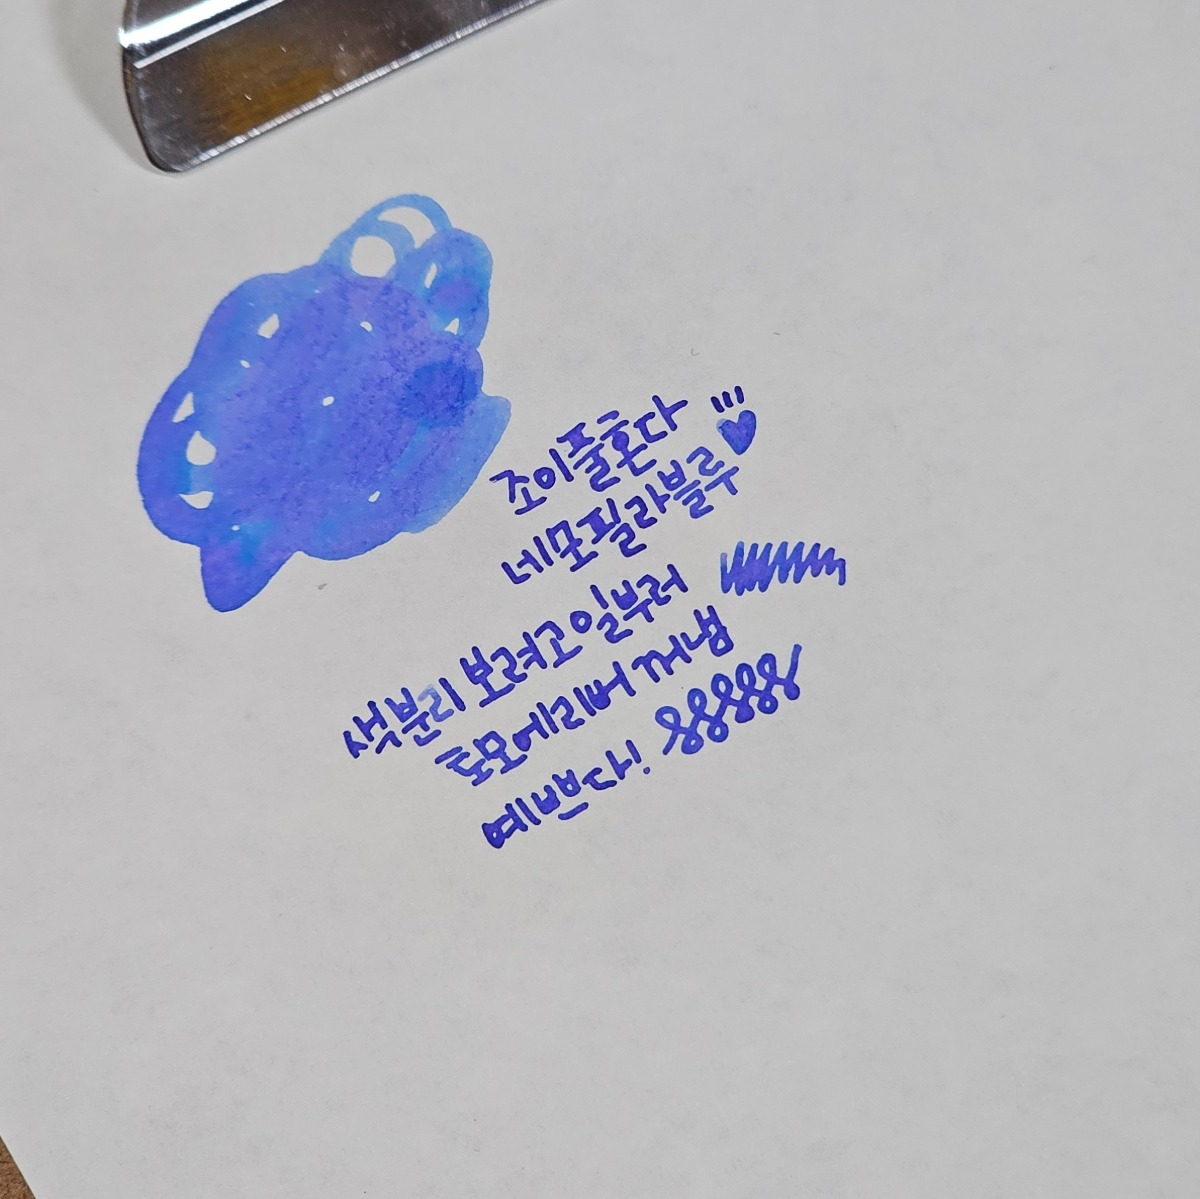 조이풀혼다
네모필라블루
색분리 보려고 일부러
토모에리버 꺼냄
예쁘다!